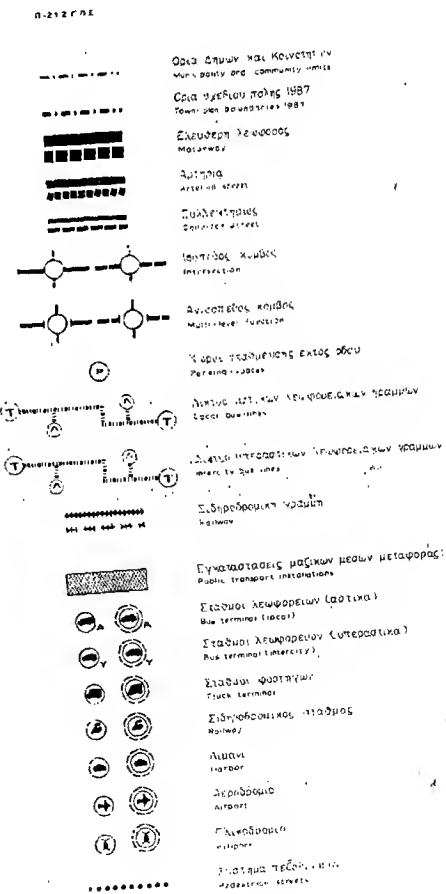 Π-212 ΓΠΣ
Ορια Δημων και Κοινοτητων
Municipality and community limits
Ορια σχεδιου πολης 1987
Town plan boundaries 1987
Ελευθερη λεωφορος
Motorway
Αρτηρια
Arterial street
Συλλεκτηριος
Collector street
Ισοπεδος κομβος
Intersection
Ανισοπεδος κομβος
Multi-level junction
P
Χωρος σταθμευσης εκτος οδου
Parking
T Λ Λ T
Δικτυο αστικων λεωφορειακων γραμμων
Local bus lines
T Λ Λ T
Δικτυο υπεραστικων λεωφορειακων γραμμων
Intercity bus lines
Σιδηροδρομικη γραμμη
Railway
Εγκαταστασεις μαζικων μεσων μεταφορας:
Public transport installations
A A
Σταθμοι λεωφορειων (αστικα)
Bus terminal (local)
Y Y
Σταθμοι λεωφορειων (υπεραστικα)
Bus terminal (intercity)
Σταθμοι φορτηγων
Truck terminal
Σιδηροδρομικος σταθμος
Railway
Λιμανι
Harbor
Αεροδρομιο
Airport
Ελικοδρομιο
Heliport
Συστημα
Pedestrian streets